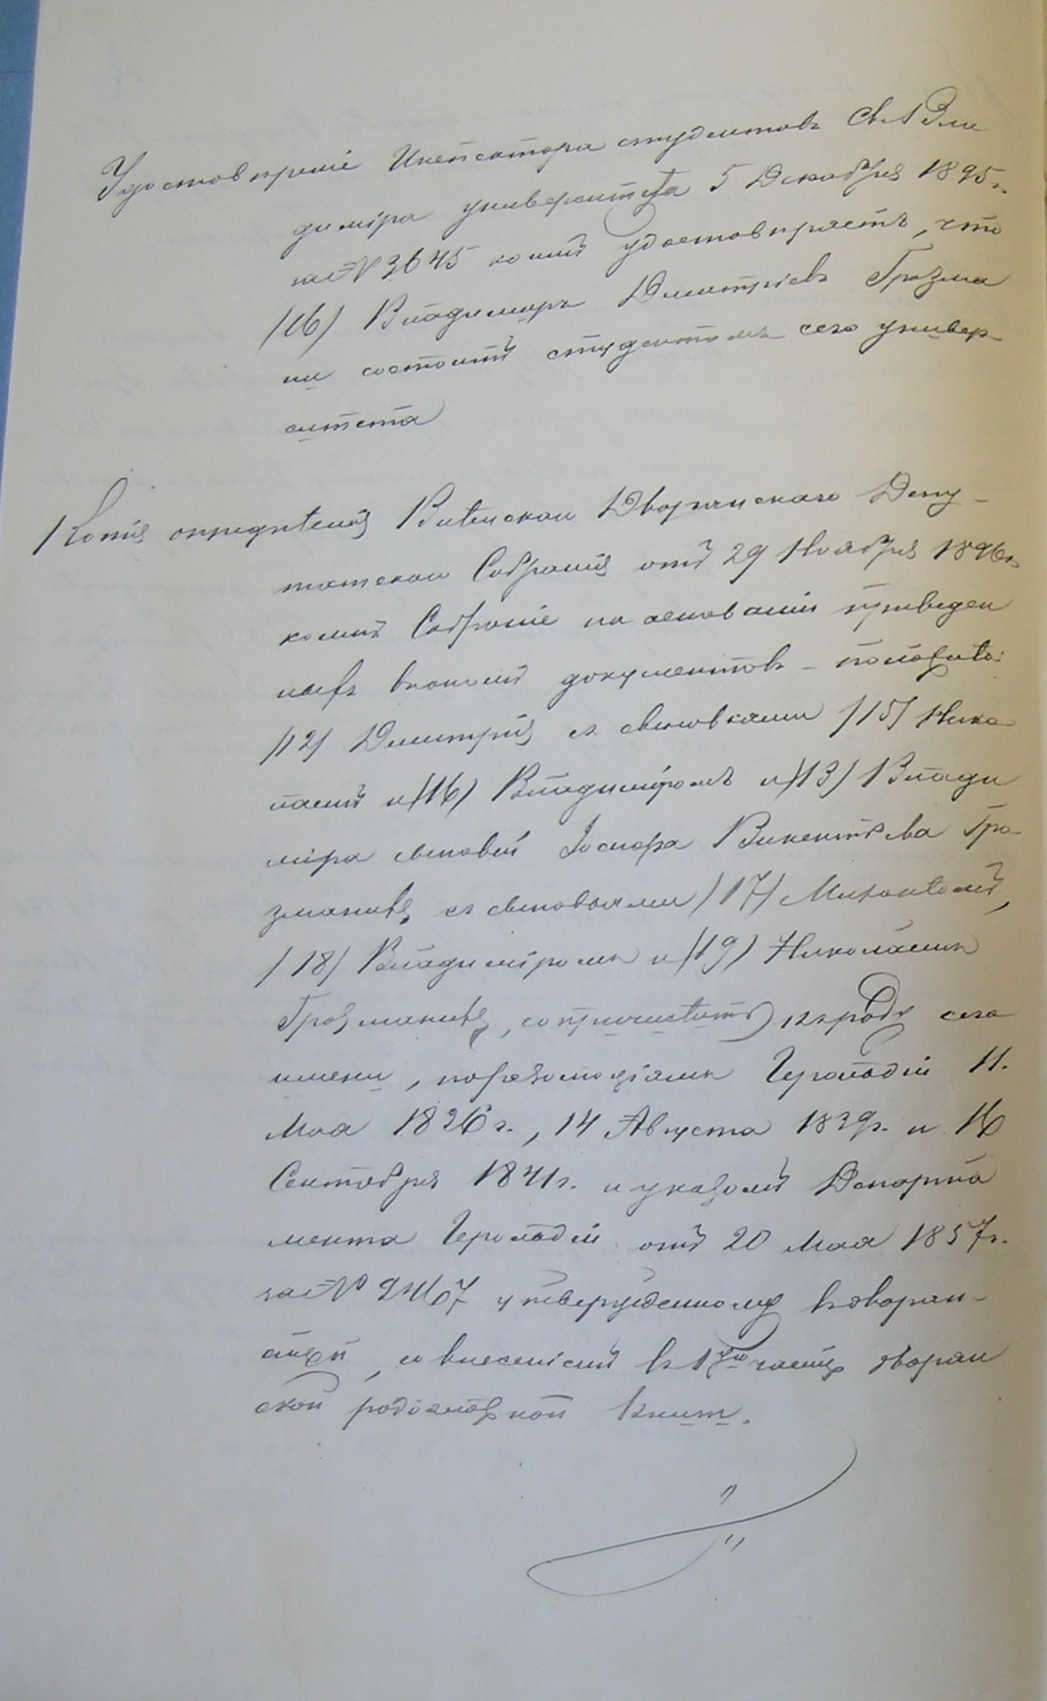 Удостоверение Инспектора студентовъ Св. Вла
димiра университета 5 Декабря 1895 г.
за № 3645 коимъ удостоверяетъ, что
/16/ Владимиръ Дмитрiевъ Грозма
ни состоитъ студентомъ сего универ-
ситета
Копiя определенiя Виленскаго Дворянскаго Депу-
татскаго Собранiя отъ 29 Ноября 1896 г.
коимъ Собранiе на основанiи приведен
ныхъ в кономъ документовъ - положило:
/12/ Дмитрiя съ сыновьями /15/ Нико
лаемъ и /16/ Владимiромъ и /13/ Влади
мiра сыновей Iосифа Викентьева Гро-
змани, съ сыновьями /17/ Михаиломъ,
/18/ Владимiромъ и /19/ Николаемъ
Грозмани, сопричислить къ роду сего
имени, по резолюцiямъ Герольдiи 11.
Мая 1826 г., 14 Августа 1839 г. и 16
Сентября 1841 г. и указомъ Департа
мента Герольдiи отъ 20 Мая 1857 г.
за № 2467 утвержденному въ дворян-
ствѣ, со внесенiемъ въ 1ую часть дворян
ской родословной книги.